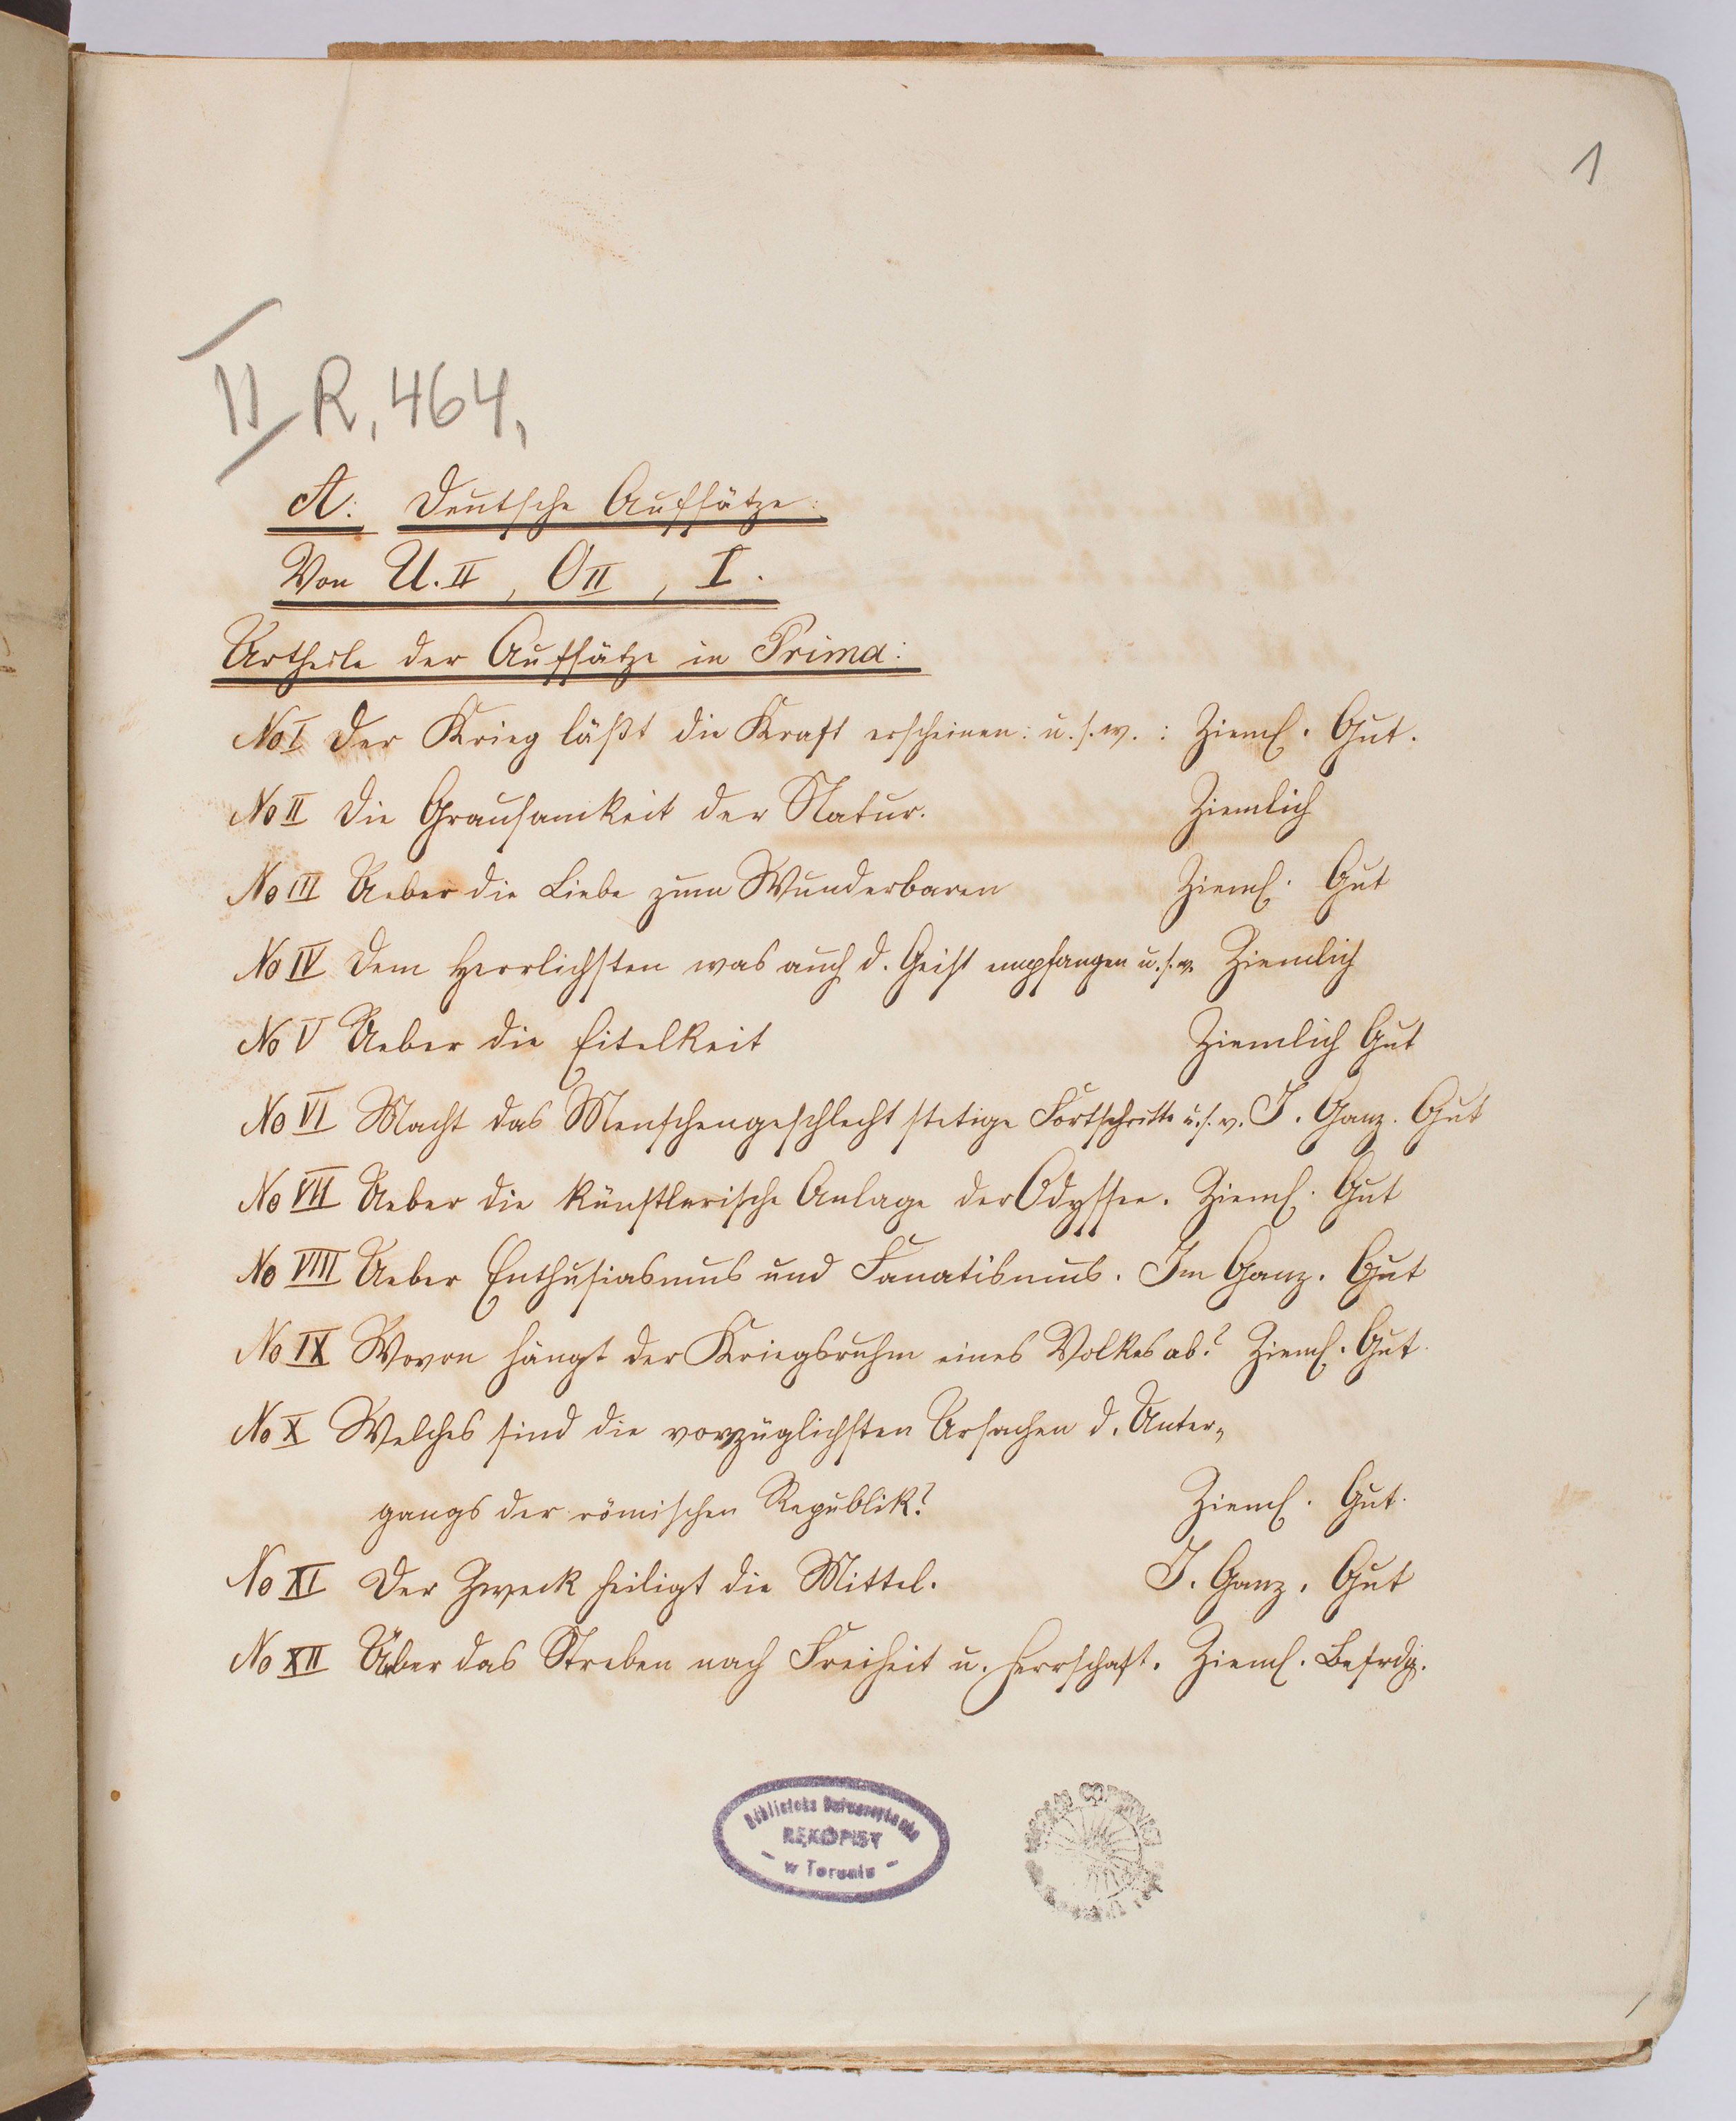 1
II R, 464,
A: Deutsche Aufsätze:
Von U. II, O II, I.
Urtheile der Aufsätze in Prima:
No I Der Krieg läßt die Kraft erscheinen: u. s. w. : Zieml. Gut.
No II Die Grausamkeit der Natur. Ziemlich
No III Ueber die Liebe zum Wunderbaren Zieml. Gut
No IV Dem Herrlichsten was auch d. Geist empfangen u. s. w. Ziemlich
No V Ueber die Eitelkeit Ziemlich Gut
No VI Macht das Menschengeschlecht stetige Fortschritte u. s. w. I. Ganz. Gut
No VII Ueber die künstlerische Anlage der Odyssee. Zieml. Gut
No VIII Ueber Enthusiasmus und Fanatismus. Im Ganz. Gut
No IX Wovon hängt der Kriegsruhm eines Volkes ab? Zieml. Gut.
No X Welches sind die vorzüglichsten Ursachen d. Unter-
gangs der römischen Republik? Zieml. Gut.
No XI Der Zweck heiligt die Mittel. I. Ganz. Gut
No XII Über das Streben nach Freiheit u. Herrschaft. Zieml. Befrdg.
Biblioteka Uniwersytecka
RĘKOPISY
- w Toruniu -